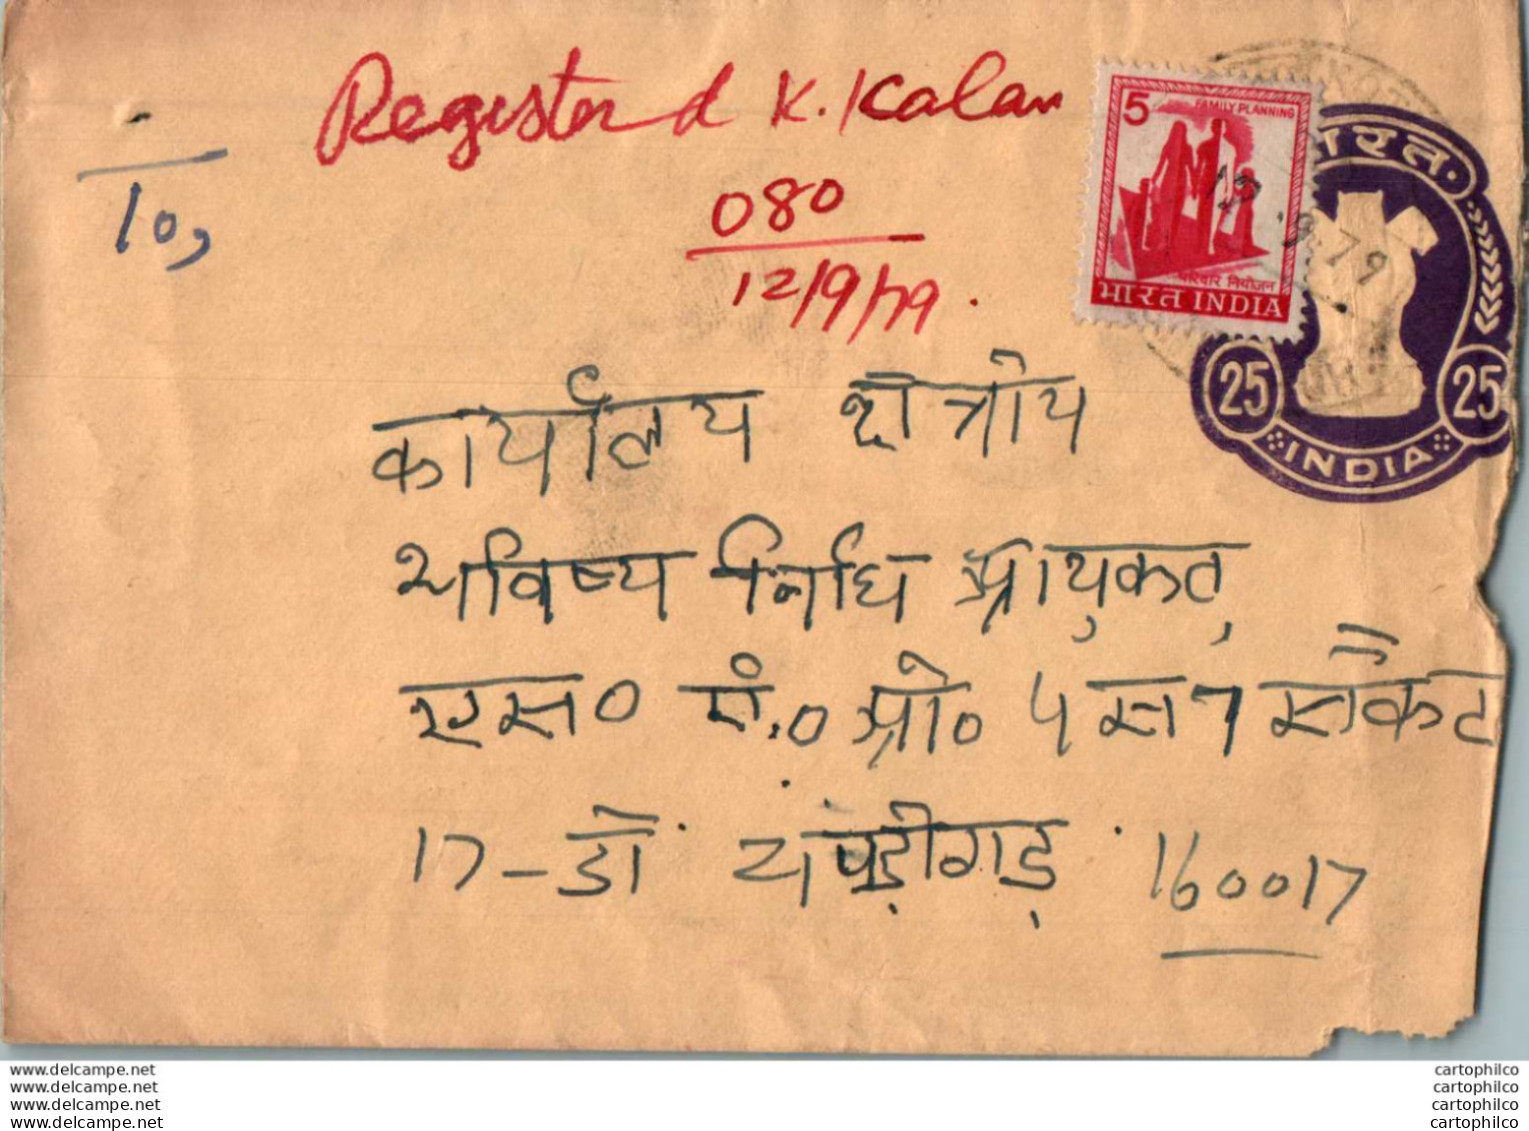 Registerd K. Kalan
080
12/9/79.
To,
5 FAMILY PLANNING
परिवार नियोजन
भारत INDIA
भारत
25 25
INDIA
9.79
कार्यालय क्षेत्रीय
भविष्य निधि आयुक्त,
एस० ए.० ओ० 5 स 7 सैकैट
17-डी चण्ड़ीगड़ 160017
www.delcampe.net
www.delcampe.net
www.delcampe.net
www.delcampe.net
cartophilco
cartophilco
cartophilco
cartophilco